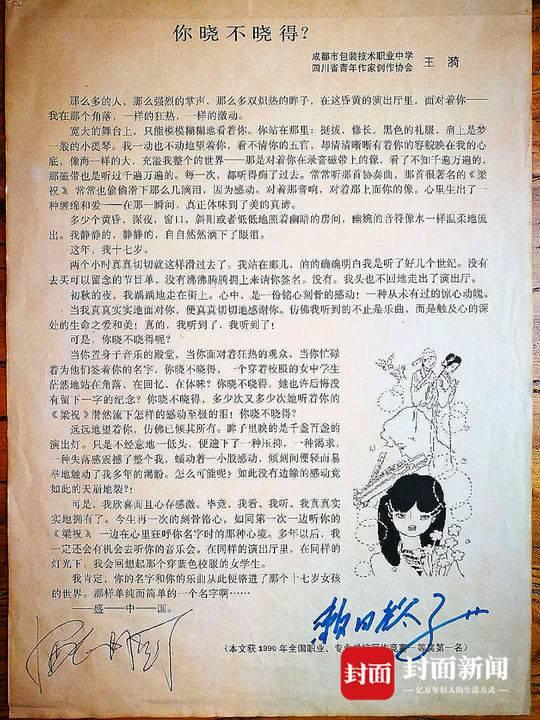 你晓不晓得？
成都市包装技术职业中学
四川省青年作家创作协会
王漪
那么多的人，那么强烈的掌声，那么多双炽热的眸子，在这昏黄的演出厅里，面对着你——
我在那个角落，一样的狂热，一样的激动。
宽大的舞台上，只能模模糊糊地看着你。你站在那里：挺拔，修长，黑色的礼服，肩上是梦
一般的小提琴。我一动也不动地望着你，看不清你的五官，却清清晰晰有着你的容貌映在我的心
底，像海一样的大，充溢我整个的世界——那是对着你在录音磁带上的像，看了不知千遍万遍的，
那磁带也是听过千遍万遍的。每一次，都听得痴了过去。常常听那首协奏曲，那首很著名的《梁
祝》常常也偷偷滑下那么几滴泪，因为感动。对着那音响，对着那上面你的像，心里生出了一
种缠绵和爱——在那一瞬间，真正体味到了美的真谛。
多少个黄昏，深夜，窗口，斜阳或者低低地照着幽暗的房间，幽婉的音符像水一样温柔地流
出。我静静的，静静的，自自然然滴下了眼泪。
这年，我十七岁。
两个小时真真切切就这样滑过去了。我站在那儿，的的确确明白我是听了好几个世纪。没有
去买可以留念的节目单，没有沸沸腾腾拥上来请你签名。没有。我头也不回地走出了演出厅。
初秋的夜，我踽踽地走在街上。心中，是一份铭心刻骨的感动！一种从未有过的惊心动魄。
当我真真实实地面对你，便真真切切地感谢你。仿佛我听到的不止是乐曲，而是触及心的深
处的生命之爱和美！真的，我听到了，我听到了！
可是，你晓不晓得呢？
当你置身于音乐的殿堂，当你面对着狂热的观众、当你忙碌
着为他们签着你的名字，你晓不晓得，一个穿着校服的女中学生
茫然地站在角落，在回忆、在体味？你晓不晓得，她也许后悔没
有留下一字的纪念？你晓不晓得，多少次又多少次她听着你的
《梁祝》潸然流下怎样的感动至极的泪！你晓不晓得？
远远地望着你，仿佛已倾其所有。眸子里映的是千盏百盏的
演出灯。只是不经意地一低头，便遗下了一种压抑，一种渴求，
一种失落感震撼了整个我，蠕动着一小股感动，倾刻间便轻而易
举地触动了我多年的渴盼。怎么可能呢？如此没有边缘的感动竟
如此的天崩地裂?!
可是，我欣喜而且心存感激。毕竟，我看、我听、我真真实
实地拥有了。今生再一次的刻骨铭心，如同第一次一边听你的
《梁祝》一边在心里狂呼你名字时的那种心境。多年以后，我
一定还会有机会去听你的音乐会。在同样的演出厅里，在同样的
灯光下，我会回想起那个穿蓝色校服的女学生。
我肯定，你的名字和你的乐曲从此便铬进了那个十七岁女孩
的世界。那样单纯而简单的一个名字啊……
——盛—中—国。
(本文获1990年全国职业、专业学校写作竞赛一等奖第一名)
封面
封面新闻
亿万年轻人的生活方式